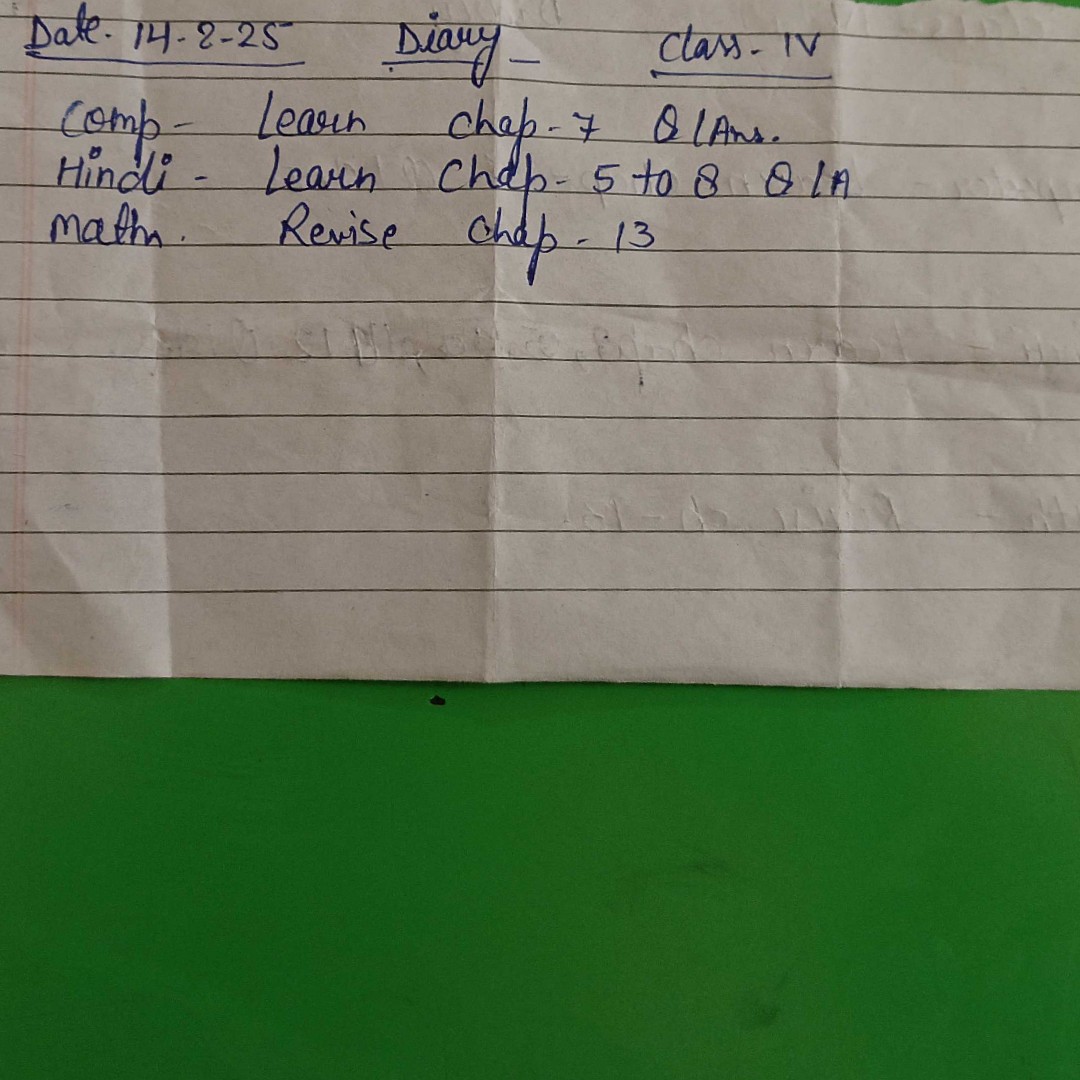 Date. 14-2-25 Diary - Class - IV
Comp - Learn Chap - 7 Q/Ans.
Hindi - Learn Chap - 5 to 8 Q/A
Math. Revise Chap - 13